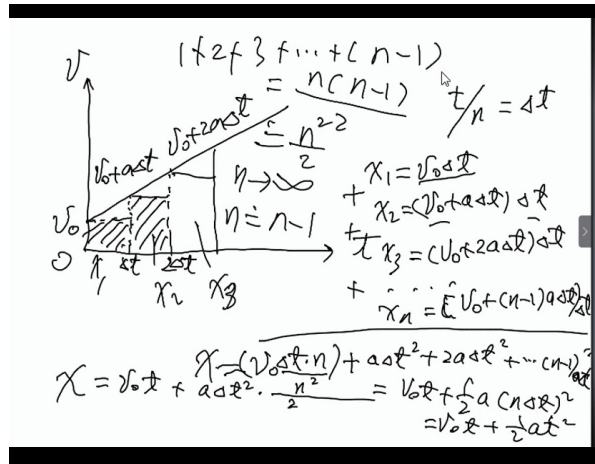 1+2+3+…+(n-1)
= n(n-1)/2
≐ n²/2
n→∞
n≐n-1
t/n = Δt
v
v₀+aΔt
v₀+2aΔt
v₀
0
x₁
Δt
2Δt
x₂
x₃
x₁=v₀Δt
+ x₂=(v₀+aΔt)Δt
+ x₃=(v₀+2aΔt)Δt
+ ……
xₙ=[v₀+(n-1)aΔt]Δt
x=(v₀Δt·n)+aΔt²+2aΔt²+…(n-1)aΔt²
x=v₀t+aΔt²·n²/2=v₀t+½a(nΔt)²
=v₀t+½at²